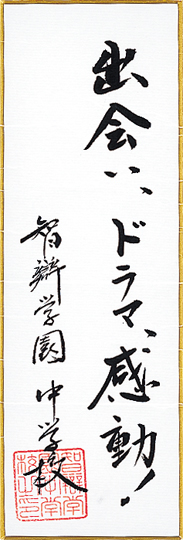 出会い、ドラマ、感動！
智辯学園中学校